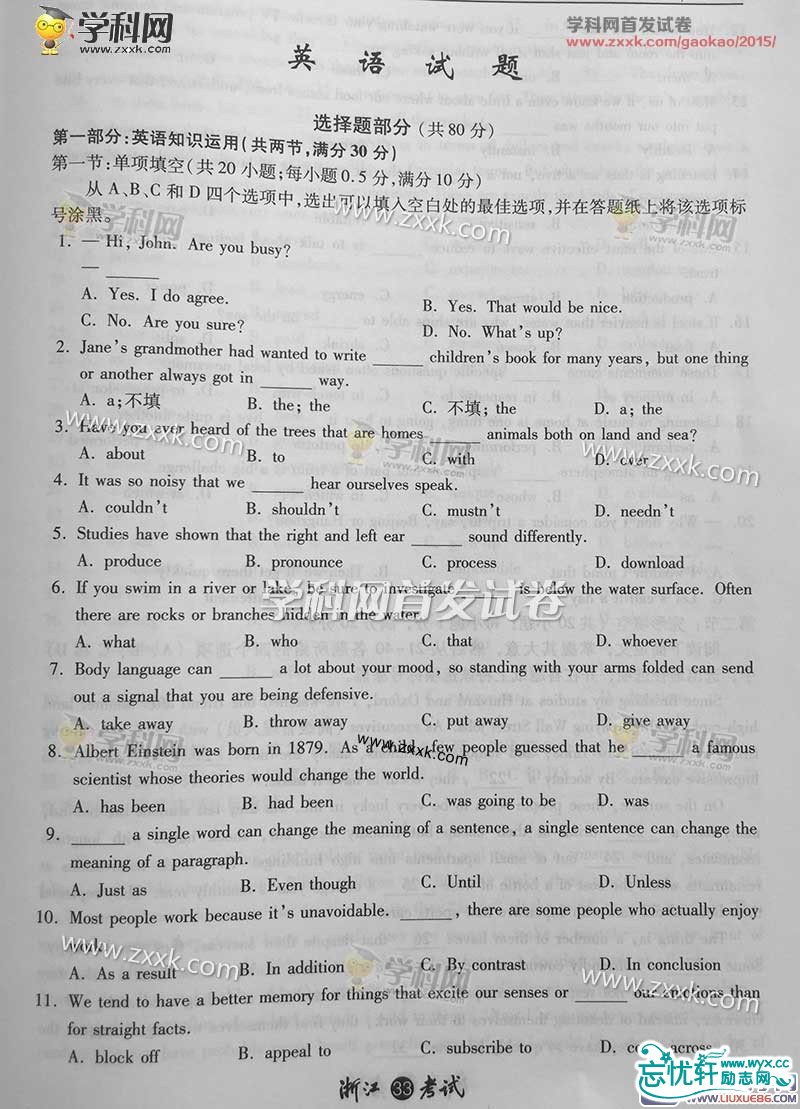 学科网
www.zxxk.com
学科网首发试卷
www.zxxk.com/gaokao/2015/
英 语 试 题
选择题部分 (共 80 分)
第一部分:英语知识运用(共两节,满分 30 分)
第一节:单项填空(共 20 小题;每小题 0.5 分,满分 10 分)
从 A、B、C 和 D 四个选项中,选出可以填入空白处的最佳选项,并在答题纸上将该选项标
号涂黑。
1. — Hi, John. Are you busy?
— ______
A. Yes. I do agree. B. Yes. That would be nice.
C. No. Are you sure? D. No. What's up?
2. Jane's grandmother had wanted to write ______ children's book for many years, but one thing
or another always got in ______ way.
A. a;不填 B. the; the C. 不填; the D. a; the
3. Have you ever heard of the trees that are homes ______ animals both on land and sea?
A. about B. to C. with D. over
4. It was so noisy that we ______ hear ourselves speak.
A. couldn't B. shouldn't C. mustn't D. needn't
5. Studies have shown that the right and left ear ______ sound differently.
A. produce B. pronounce C. process D. download
6. If you swim in a river or lake, be sure to investigate ______ is below the water surface. Often
there are rocks or branches hidden in the water.
A. what B. who C. that D. whoever
7. Body language can ______ a lot about your mood, so standing with your arms folded can send
out a signal that you are being defensive.
A. take away B. throw away C. put away D. give away
8. Albert Einstein was born in 1879. As a child, few people guessed that he ______ a famous
scientist whose theories would change the world.
A. has been B. had been C. was going to be D. was
9. ______ a single word can change the meaning of a sentence, a single sentence can change the
meaning of a paragraph.
A. Just as B. Even though C. Until D. Unless
10. Most people work because it's unavoidable. ______, there are some people who actually enjoy
work.
A. As a result B. In addition C. By contrast D. In conclusion
11. We tend to have a better memory for things that excite our senses or ______ our emotions than
for straight facts.
A. block off B. appeal to C. subscribe to D. come across
浙江 33 考试
www.wyx.cc
忘忧轩励志网
WWW.LIUXUE86.COM